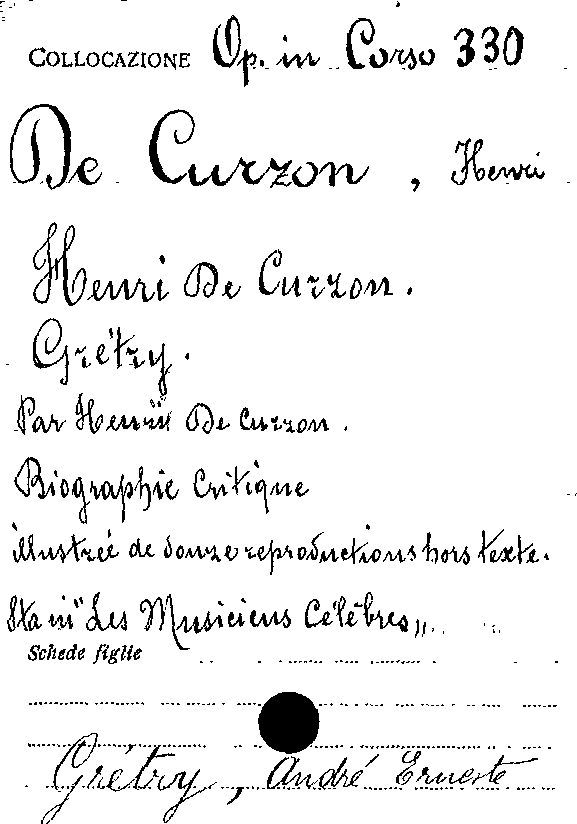 COLLOCAZIONE Op. in Corso 330
De Curzon, Henri
Henri De Curzon.
Grétry.
Par Henri De Curzon.
Biographie Critique
illustrée de douze reproductions hors texte.
Sta in "Les Musiciens Célèbres„
Schede figlie
Grétry, André Erneste